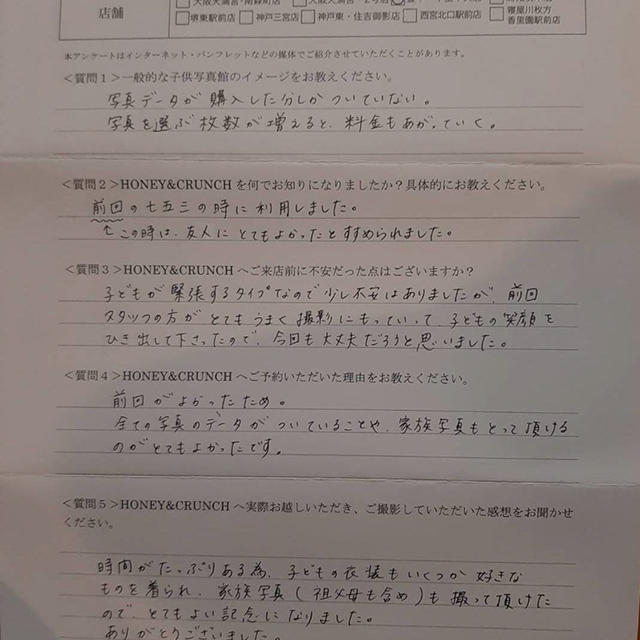 店舗
堺東駅前店 神戸三宮店 神戸東・住吉御影店 西宮北口駅前店 寝屋川枚方
香里園駅前店
本アンケートはインターネット・パンフレットなどの媒体でご紹介させていただくことがあります。
＜質問１＞一般的な子供写真館のイメージをお教えください。
写真データが購入した分しかついていない。
写真を選ぶ枚数が増えると、料金もあがっていく。
＜質問２＞HONEY&CRUNCH を何でお知りになりましたか？具体的にお教えください。
前回の七五三の時に利用しました。
↑この時は、友人にとてもよかったとすすめられました。
＜質問３＞HONEY&CRUNCH へご来店前に不安だった点はございますか？
子どもが緊張するタイプなので少し不安はありましたが、前回
スタッフの方がとてもうまく撮影にもっていって、子どもの笑顔を
ひき出して下さったので、今回も大丈夫だろうと思いました。
＜質問４＞HONEY&CRUNCH へご予約いただいた理由をお教えください。
前回がよかったため。
全ての写真のデータがついていることや、家族写真もとって頂ける
のがとてもよかったです。
＜質問５＞HONEY&CRUNCH へ実際お越しいただき、ご撮影していただいた感想をお聞かせ
ください。
時間がたっぷりある為、子どもの衣装もいくつか好きな
ものを着られ、家族写真(祖父母も含め)も撮って頂けた
ので、とてもよい記念になりました。
ありがとうございました。